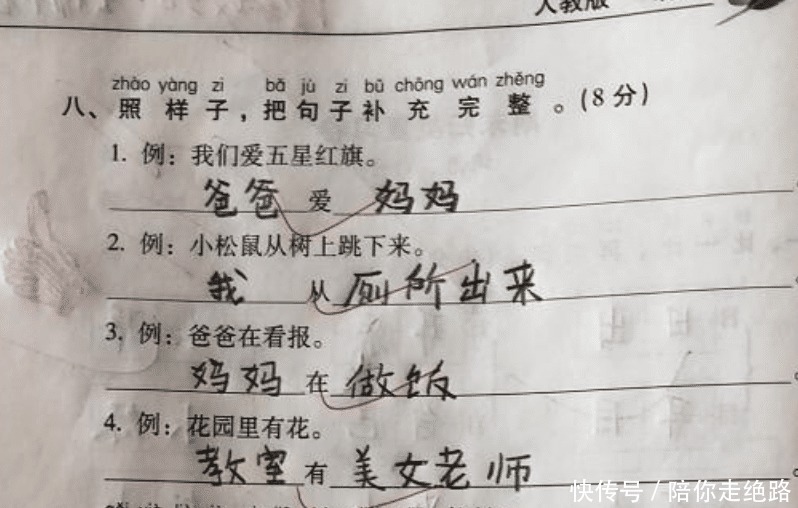 人教版
zhào yàng zi bǎ jù zi bǔ chōng wán zhěng
八、照样子，把句子补充完整。(8分)
1. 例：我们爱五星红旗。
爸爸爱妈妈
2. 例：小松鼠从树上跳下来。
我从厕所出来
3. 例：爸爸在看报。
妈妈在做饭
4. 例：花园里有花。
教室有美女老师
快传号/陪你走绝路